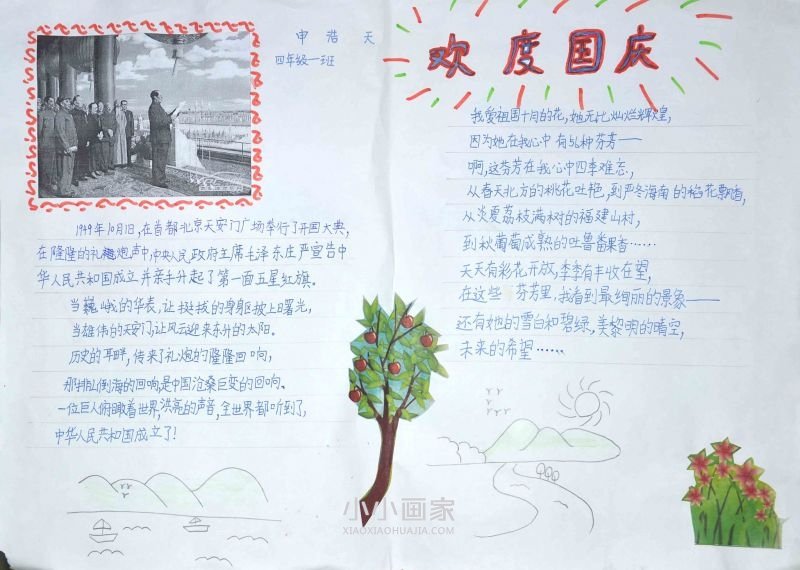 申浩天
四年级一班
1949年10月1日,在首都北京天安门广场举行了开国大典,
在隆隆的礼炮声中,中央人民政府主席毛泽东庄严宣告中
华人民共和国成立并亲手升起了第一面五星红旗。
当巍峨的华表,让挺拔的身躯披上曙光,
当雄伟的天安门,让风云迎来东升的太阳。
历史的耳畔,传来了礼炮的隆隆回响,
那排山倒海的回响是中国沧桑巨变的回响。
一位巨人俯瞰着世界,洪亮的声音,全世界都听到了,
中华人民共和国成立了!
欢度国庆
我爱祖国十月的花,她无比灿烂辉煌,
因为她在我心中有56种芬芳——
啊,这芬芳在我心中四季难忘,
从春天北方的桃花吐艳,到严冬海南的稻花飘香,
从炎夏荔枝满树的福建山村,
到秋葡萄成熟的吐鲁番果香……
天天有彩花开放,季季有丰收在望,
在这些芬芳里,我看到最绚丽的景象——
还有她的雪白和碧绿,美黎明的晴空,
未来的希望……
小小画家
XIAOXIAOHUAJIA.COM